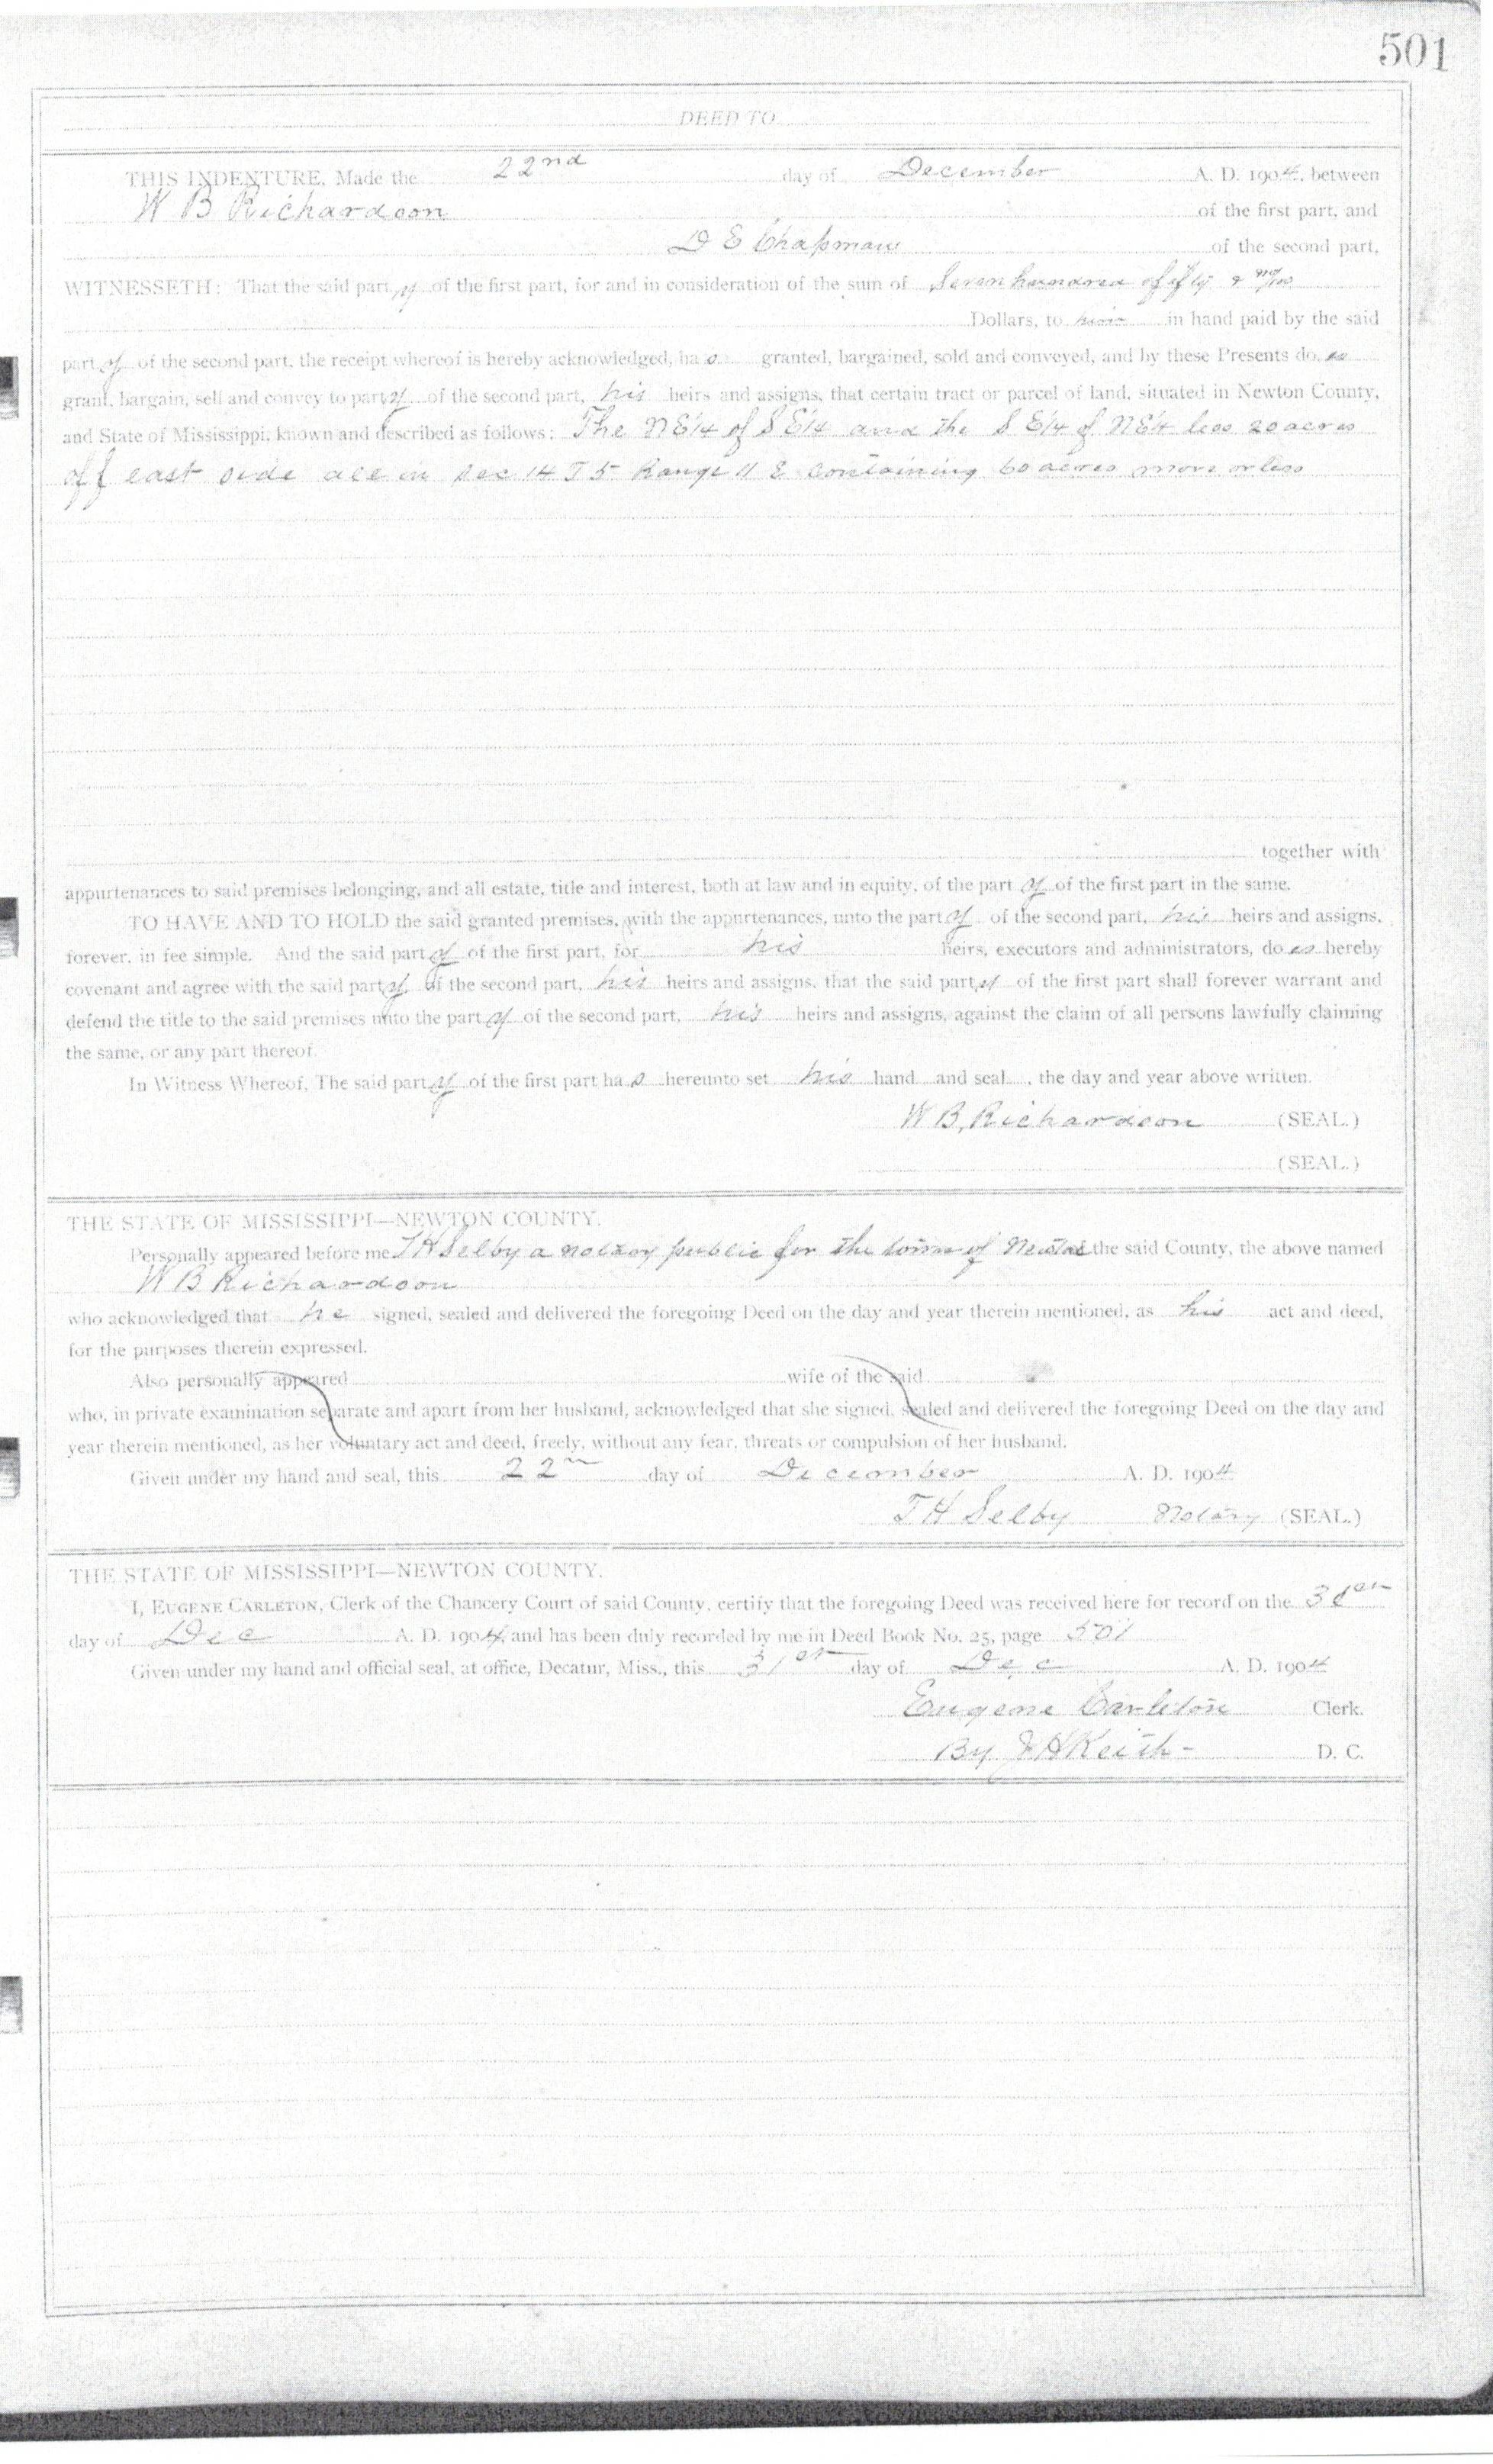 501
DEED TO
THIS INDENTURE, Made the 22nd day of December A. D. 1904, between
W B Richardson of the first part, and
D E Chapman of the second part,
WITNESSETH: That the said party of the first part, for and in consideration of the sum of Seven hundred fifty & no/100
Dollars, to him in hand paid by the said
party of the second part, the receipt whereof is hereby acknowledged, has granted, bargained, sold and conveyed, and by these Presents does
grant, bargain, sell and convey to party of the second part, his heirs and assigns, that certain tract or parcel of land, situated in Newton County,
and State of Mississippi, known and described as follows: The NE1/4 of SE1/4 and the SE1/4 of NE1/4 less 20 acres
off east side all in Sec 14 T 5 Range 11 E containing 60 acres more or less
together with
appurtenances to said premises belonging, and all estate, title and interest, both at law and in equity, of the party of the first part in the same.
TO HAVE AND TO HOLD the said granted premises, with the appurtenances, unto the party of the second part, his heirs and assigns,
forever, in fee simple. And the said party of the first part, for his heirs, executors and administrators, does hereby
covenant and agree with the said party of the second part, his heirs and assigns, that the said party of the first part shall forever warrant and
defend the title to the said premises unto the party of the second part, his heirs and assigns, against the claim of all persons lawfully claiming
the same, or any part thereof.
In Witness Whereof, The said party of the first part has hereunto set his hand and seal , the day and year above written.
W B, Richardson (SEAL.)
(SEAL.)
THE STATE OF MISSISSIPPI—NEWTON COUNTY.
Personally appeared before me T H Selby a notary public for the town of Newton the said County, the above named
W B Richardson
who acknowledged that he signed, sealed and delivered the foregoing Deed on the day and year therein mentioned, as his act and deed,
for the purposes therein expressed.
Also personally appeared wife of the said
who, in private examination separate and apart from her husband, acknowledged that she signed, sealed and delivered the foregoing Deed on the day and
year therein mentioned, as her voluntary act and deed, freely, without any fear, threats or compulsion of her husband.
Given under my hand and seal, this 22n day of December A. D. 1904
T H Selby Notary (SEAL.)
THE STATE OF MISSISSIPPI—NEWTON COUNTY.
I, EUGENE CARLETON, Clerk of the Chancery Court of said County, certify that the foregoing Deed was received here for record on the
day of Dec A. D. 1904, and has been duly recorded by me in Deed Book No. 25, page 501
Given under my hand and official seal, at office, Decatur, Miss., this 31st day of Dec A. D. 1904
Eugene Carleton Clerk.
By J H Keith - D. C.